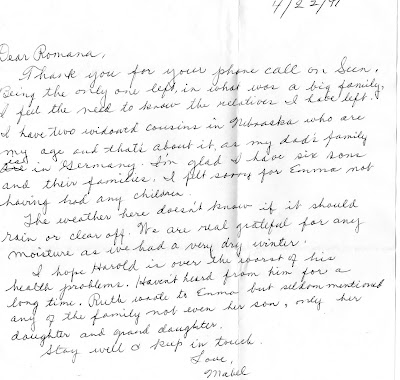 4/22/91
Dear Romana,
Thank you for your phone call on Sun.
Being the only one left, in what was a big family,
I feel the need to know the relatives I have left.
I have two widowed cousins in Nebraska who are
my age and that's about it, as my dad's family
in Germany. I'm glad I have six sons
and their families. I felt sorry for Emma not
having had any children.
The weather here doesn't know if it should
rain or clear off. We are real grateful for any
moisture as we had a very dry winter.
I hope Harold is over the worst of his
health problems. Haven't heard from him for a
long time. Ruth wrote to Emma but seldom mentioned
any of the family not even her son, only her
daughter and grand daughter.
Stay well & keep in touch.
Love,
Mabel